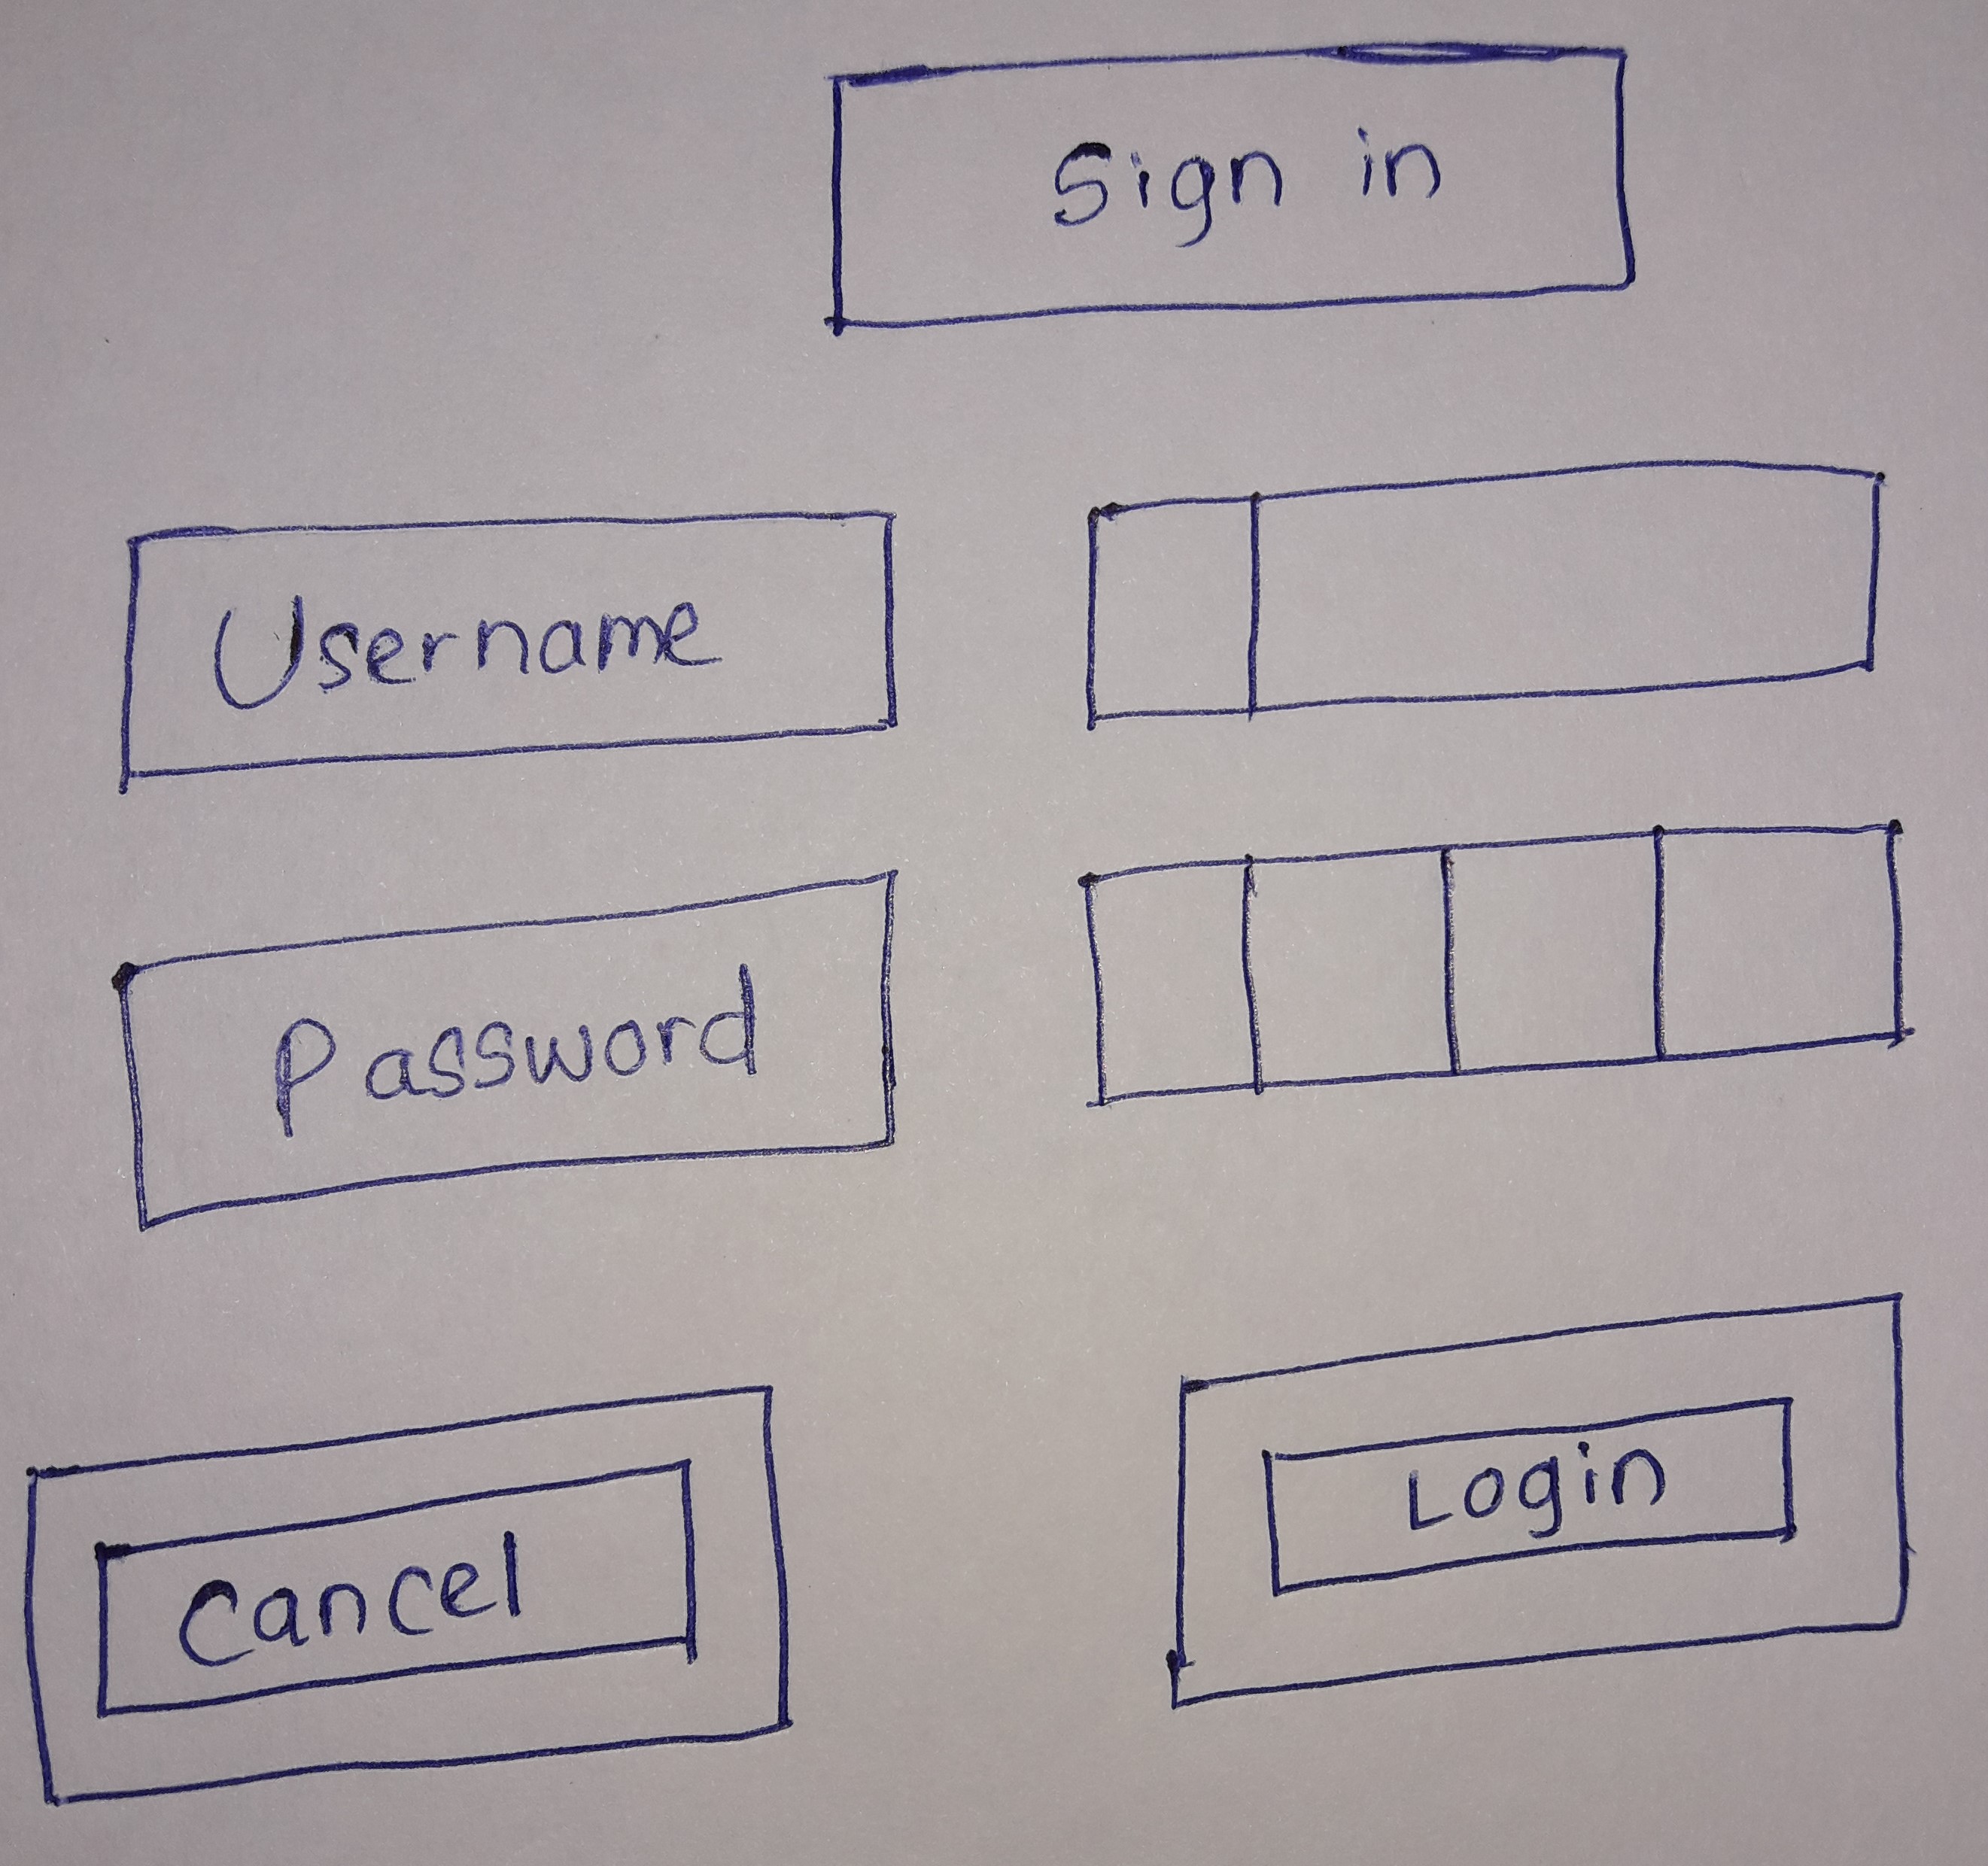 Sign in
Username
Password
Cancel
Login